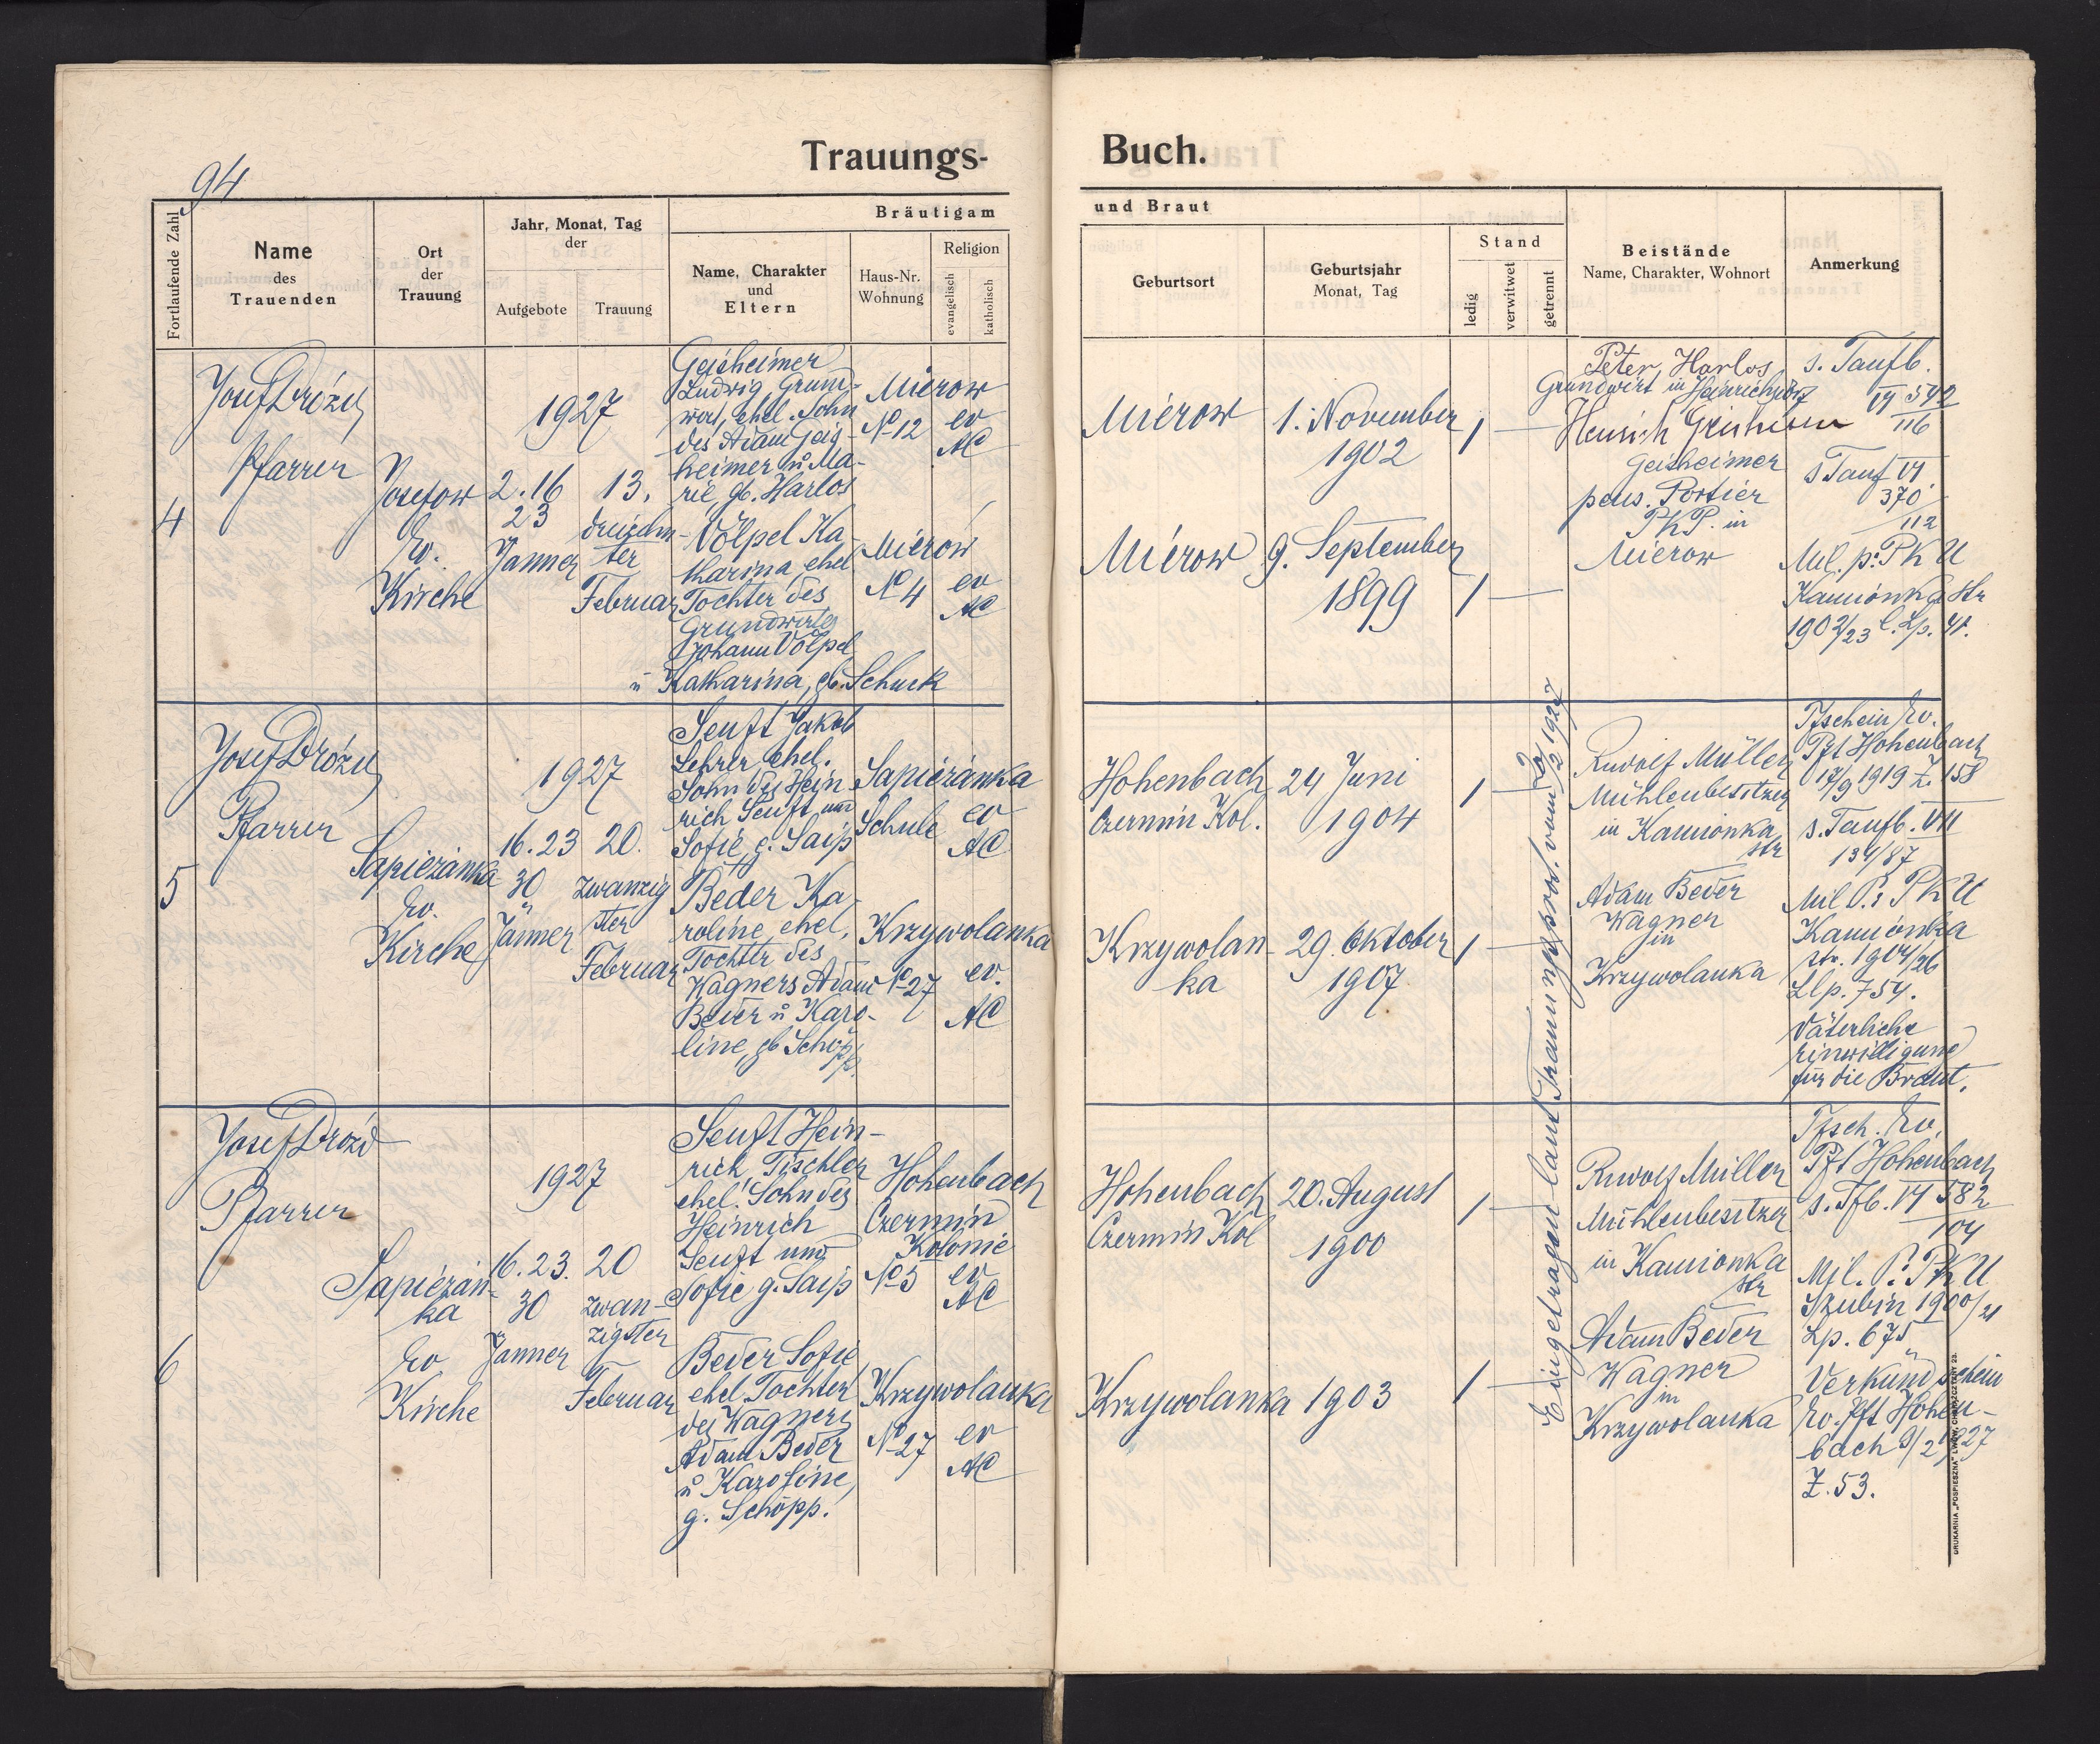 94
Trauungs-
Buch.
Fortlaufende Zahl
Name
des
Trauenden
Ort
der
Trauung
Jahr, Monat, Tag
der
Aufgebote
Trauung
Bräutigam
Name, Charakter
und
Eltern
Haus-Nr.
Wohnung
Religion
evangelisch
katholisch
und Braut
Geburtsort
Geburtsjahr
Monat, Tag
Stand
ledig
verwitwet
getrennt
Beistände
Name, Charakter, Wohnort
Anmerkung
4
Josef Drózd
Pfarrer
Josefow
Ev.
Kirche
1927
2. 16
23
Janner
13.
dreizehn-
ter
Februar
Geisheimer
Ludwig Grund-
wirt, ehel. Sohn
des Adam Geis-
heimer u Ma-
rie, gb. Harlos
Mierow
No 12
ev
AC
Völpel Ka-
tharina, ehel
Tochter des
Grundwirtes
Johann Völpel
u Katharina, gb. Schuck
Mierow
No 4
ev
AC
Mierow
1. November
1902
Mierow
9. September
1899
Peter Harlos
Grundwirt in Heinrichsdorf
Heinrich Geisheimer
Geisheimer
pens. Portier
PKP. in
Mierow
s. Taufb.
VI 542
116
s Tauf VI
370
112
Mil. p: PKU
Kamionka Str
1902/23 l. Lp. 41.
5
Josef Drózd
Pfarrer
Sapiezanka
Ev.
Kirche
1927
16. 23
30
Jänner
20.
zwanzig
ster
Februar
Senft Jakob
Lehrer, ehel.
Sohn des Hein
rich Senft und
Sofie g. Saip
Sapiezanka
Schule
ev
AC
Beder Ka-
roline, ehel.
Tochter des
Wagners Adam
Beder u Karo-
line, gb Schöpp.
Krzywolanka
No 27
ev.
AC
Hohenbach
Czermin Kol.
24 Juni
1904
Krzywolan-
ka
29. Oktober
1907
Rudolf Müller
Mühlenbesitzer
in Kamionka
str
Adam Beder
Wagner
in
Krzywolanka
Tfschein Ev.
Pft Hohenbach
17/9 1919 Z. 158
s. Taufb. VII
134/87
Mil P.: PKU
Kamionka
str. 1904/26
Llp. 754.
Väterliche
Einwilligung
für die Braut.
6
Josef Drózd
Pfarrer
Sapiezan-
ka
Ev
Kirche
1927
16. 23.
30
Janner
20
zwan-
zigster
Februar
Senft Hein-
rich, Tischler
ehel. Sohn des
Heinrich
Senft und
Sofie g. Saip
Hohenbach
Czermin
Kolonie
No 5
ev
AC
Beder Sofie
ehel. Tochter
des Wagners
Adam Beder
u Karoline,
g. Schöpp.
Krzywolanka
No 27
ev
AC
Hohenbach
Czermin Kol
20. August
1900
Krzywolanka
1903
Eingetragen laut Trauungsprot. vom 20/2 1927
Rudolf Müller
Mühlenbesitzer
in Kamionka
str
Adam Beder
Wagner
in
Krzywolanka
Tfsch. Ev.
Pft Hohenbach
s. Tfb. VI 582
104
Mil. P.: PKU
Szubin 1900/21
Lp. 675
Verkündschein
Ev. Pft Hohen-
bach 9/2 1927
Z. 53.
DRUKARNIA „POSPIESZNA" LWÓW, CHORĄŻCZYZNY 23.